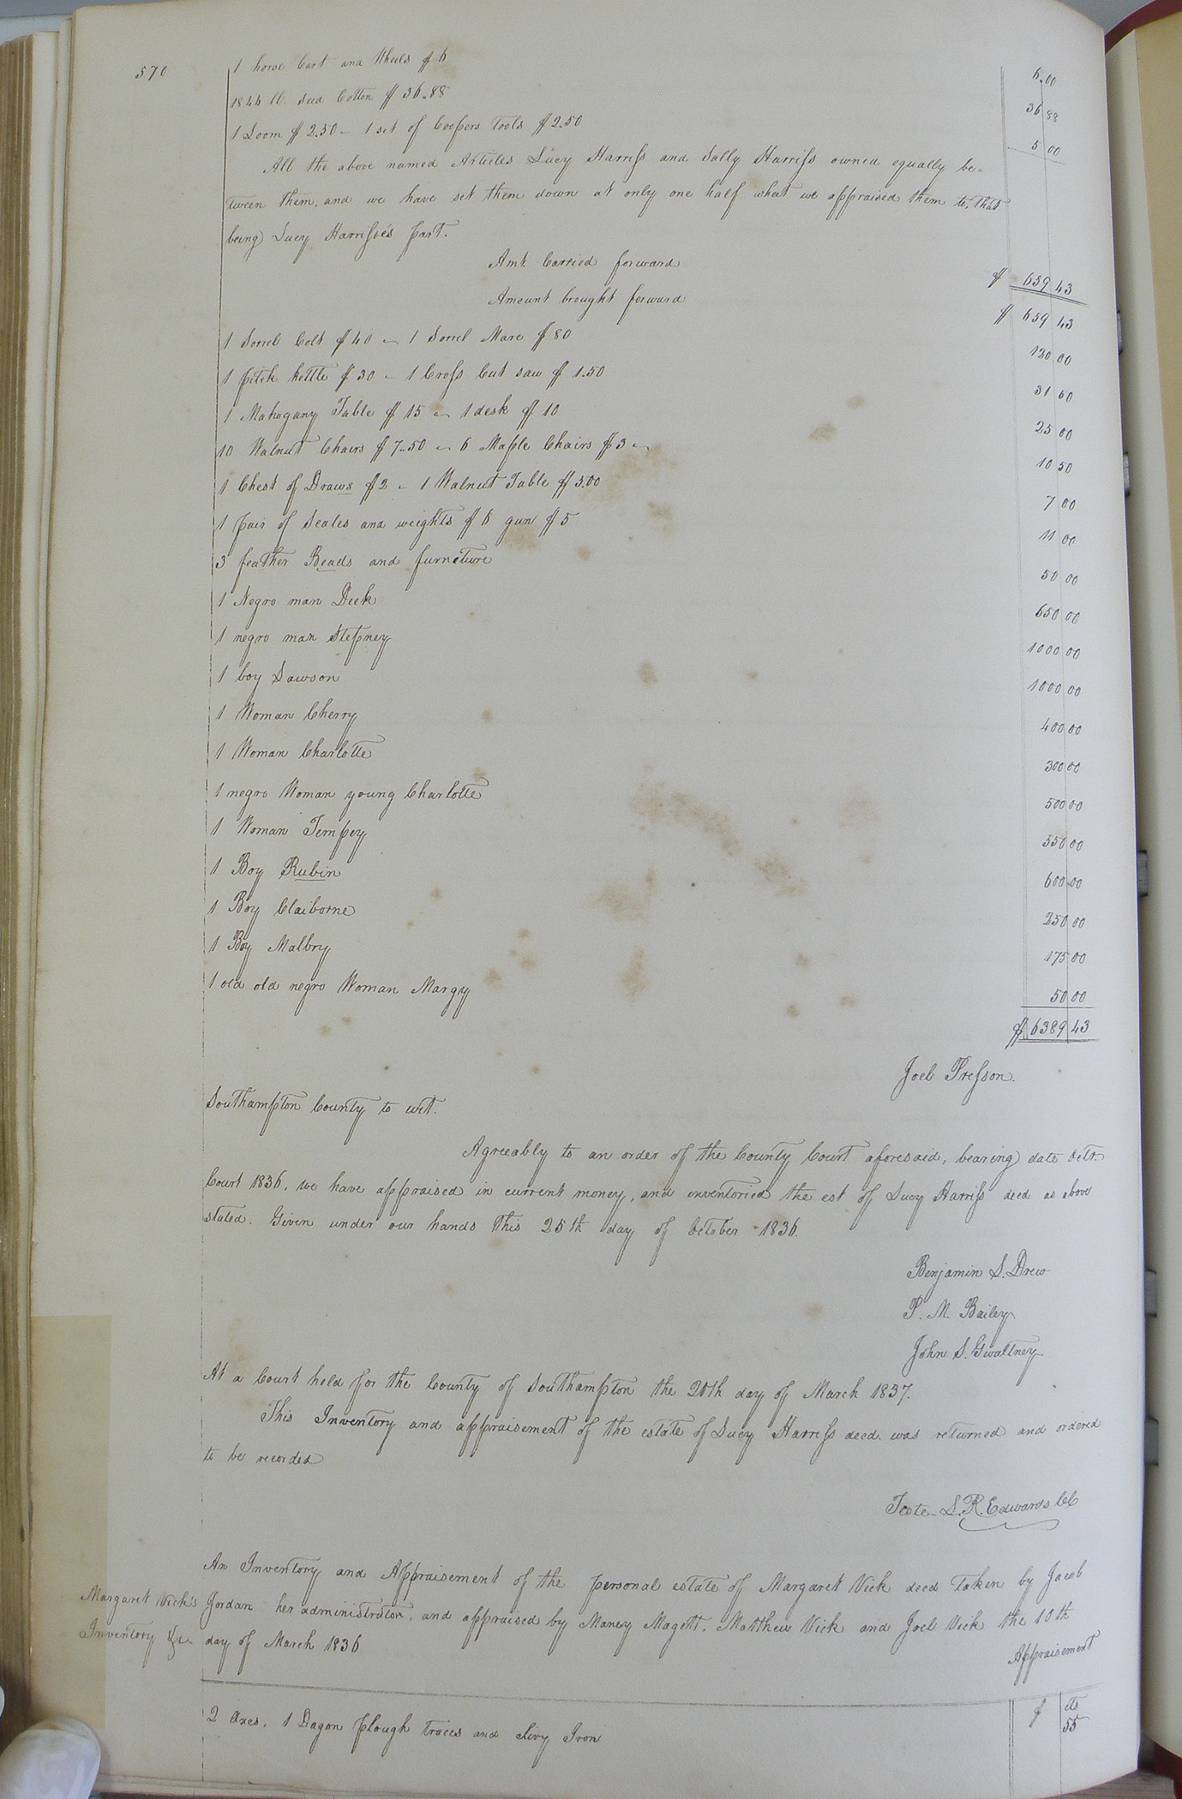 570
1 horse Cart and Wheels $6 6.00
1844 lb. Seed Cotton $36.88 36 88
1 Loom $2.50 - 1 set of Coopers Tools $2.50 5 00
All the above named Articles Lucy Harriss and Sally Harriss owned equally be-
tween them, and we have set them down at only one half what we appraised them to, that
being Lucy Harrisse's part.
Amt. Carried forward $ 659 43
Amount brought forward $ 659 43
1 Sorrel Colt $40 - 1 Sorrel Mare $80 120 00
1 pitch kettle $30 - 1 Cross Cut saw $1.50 31 50
1 Mahogany Table $15 - 1 desk $10 25 00
10 Walnut Chairs $7.50 - 6 Maple Chairs $3 - 10 50
1 Chest of Draws $2 - 1 Walnut Table $5.00 7 00
1 pair of Scales and weights $6 gun $5 11 00
3 feather Beads and furneture 50 00
1 Negro man Dick 650 00
1 negro man Stepney 1000 00
1 boy Dawson 1000 00
1 Woman Cherry 400 00
1 Woman Charlotte 300 00
1 negro Woman young Charlotte 500 00
1 Woman Tempey 550 00
1 Boy Rubin 600 00
1 Boy Claiborne 250 00
1 Boy Malbry 175 00
1 old old negro Woman Margy 50 00
$ 6389 43
Joel Presson.
Southampton County to wit.
Agreeably to an order of the County Court aforesaid, bearing date Octr.
Court 1836. we have appraised in current money, and inventoried the est of Lucy Harriss decd as above
stated. Given under our hands this 25th day of October 1836.
Benjamin S. Drew
P. M. Bailey
John S. Gwaltney
At a Court held for the County of Southampton the 20th day of March 1837.
This Inventory and appraisement of the estate of Lucy Harriss decd. was returned and ordered
to be recorded
Teste. L. R. Edwards CC
An Inventory and Appraisement of the personal estate of Margaret Vick decd Taken by Jacob
Margaret Vick's Jordan her administrator, and appraised by Maney Magett, Matthew Vick and Joel Vick the 10th
Inventory &c. day of March 1836 Appraisement
$ cts
2 Axes, 1 Dagon plough traces and clivy Iron 55